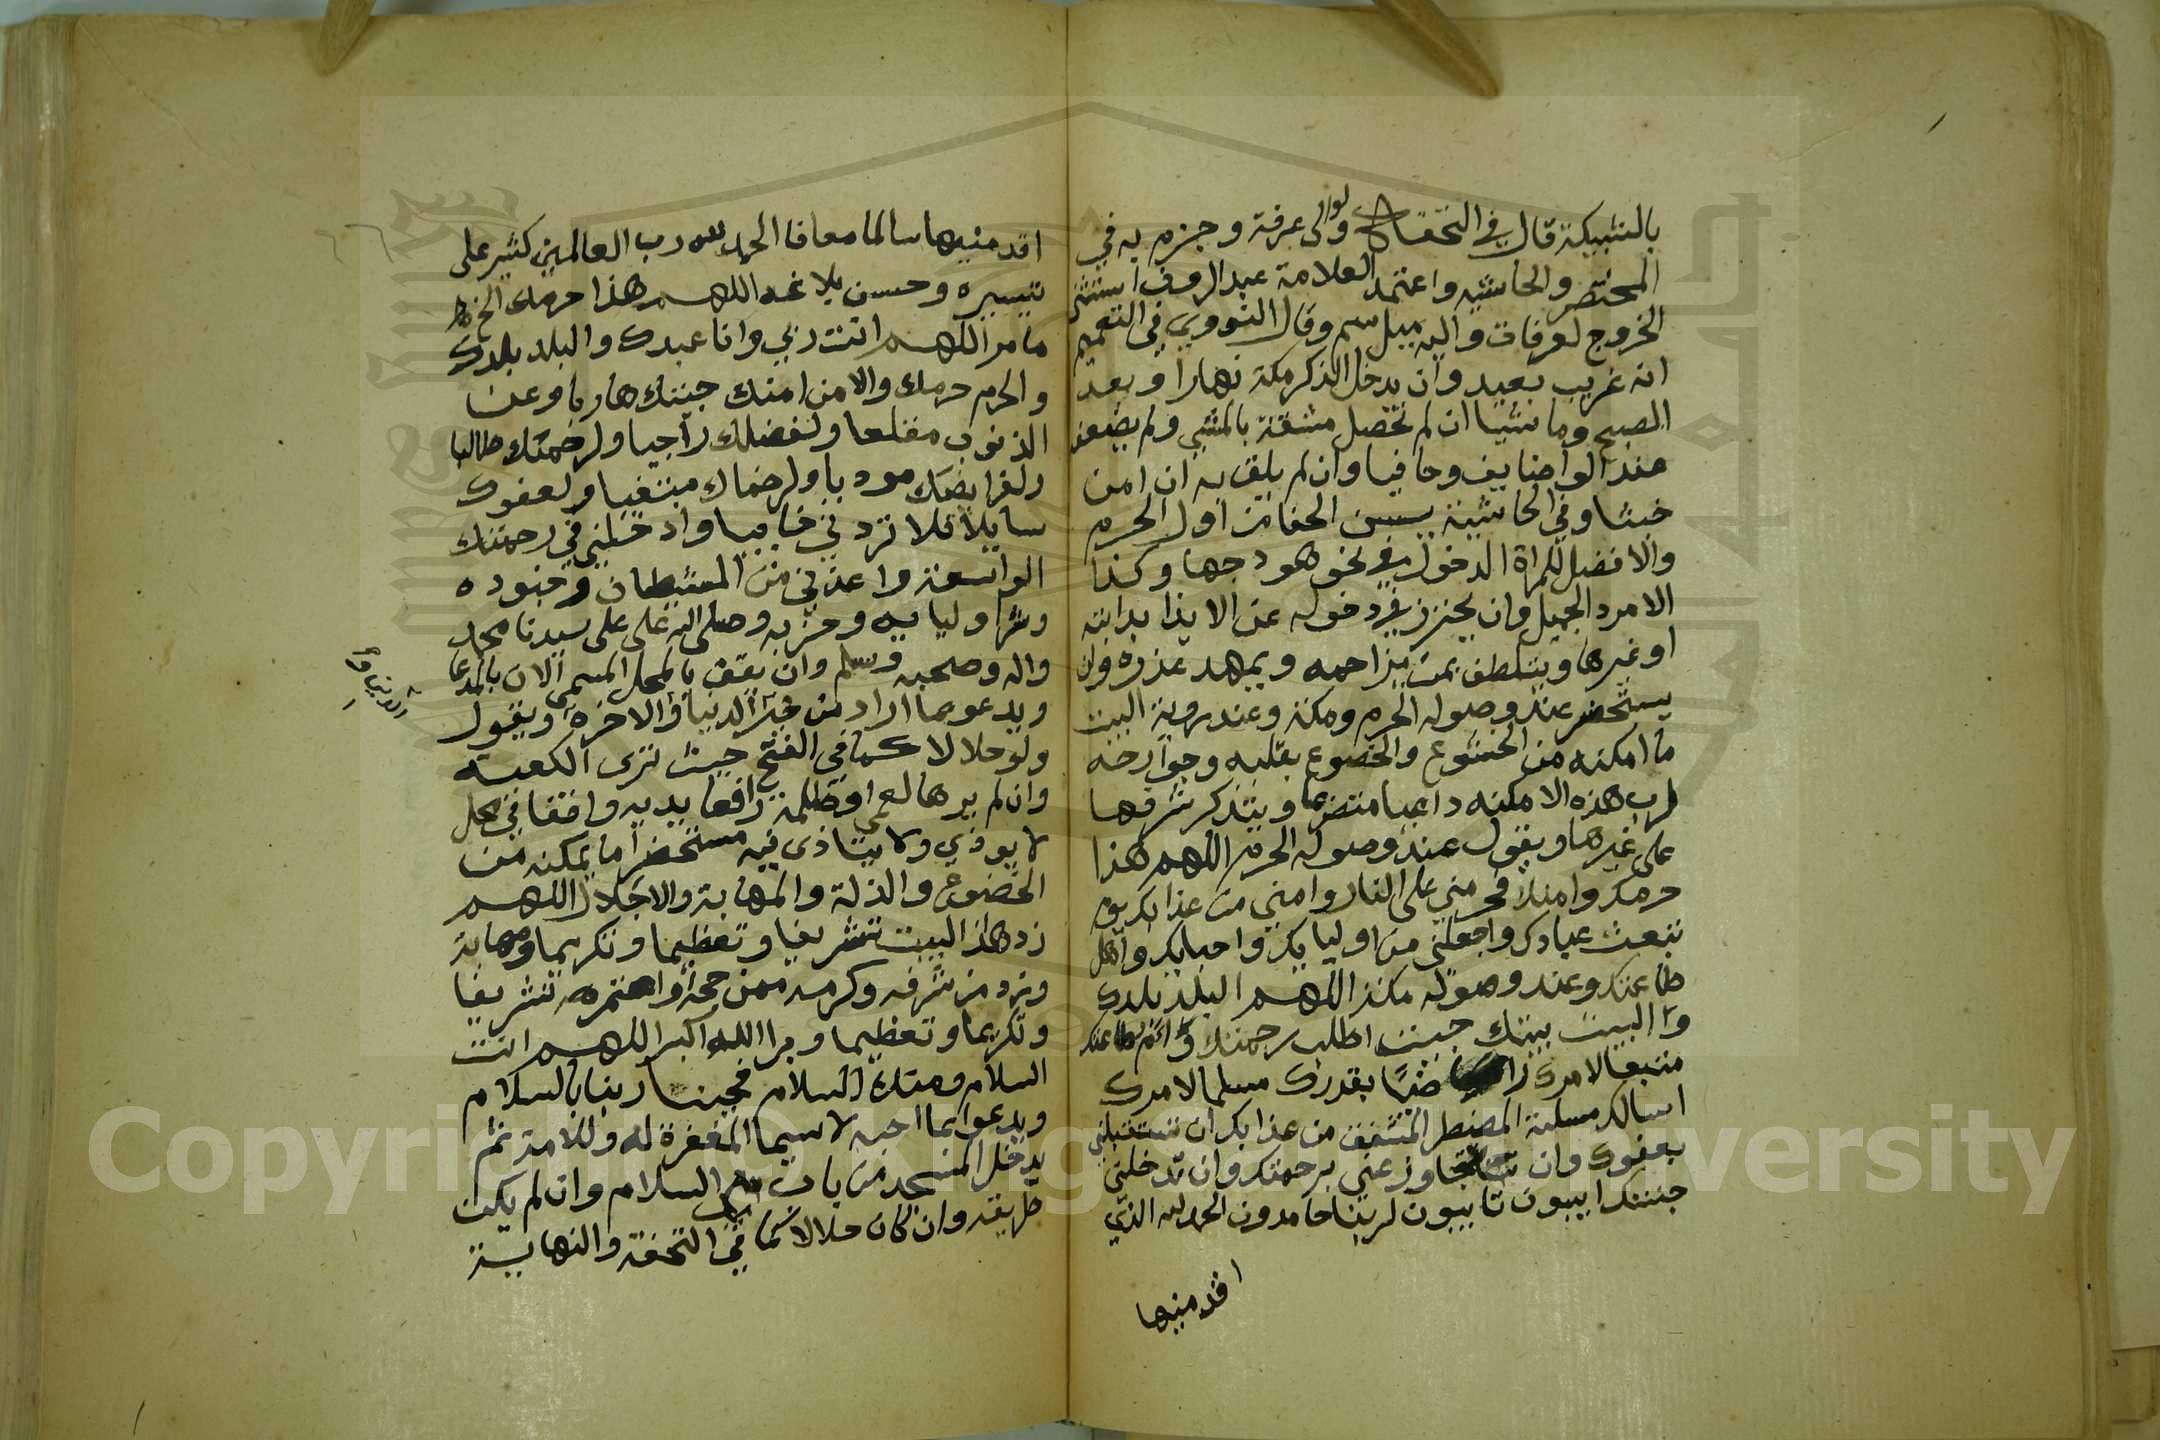 بالشبيكة قال في التحفة ولو الى عرفة وجزم به في
المختصر والحاشيه واعتمد العلامة عبد الروف استثنى
الخروج لعرفات واليه ميل سم وقال النووي في التعميم
انه غريب بعيد وان يدخل الذكر مكة نهارا وبعد
الصبح وماشيا ان لم تحصل مشقة بالمشي ولم يضعف
عند الوضايف وحافيا وان لم يليق به ان امن
خبثا وفي الحاشية يسن الحفا من اول الحرم
والافضل للمراة الدخول في نحو هودجها وكذا
الامرد الجميل وان يحترز في دخوله عن الايذا بدابته
او غيرها ويتلطف بمن يزاحمه ويمهد عذره وان
يستحضر عند وصوله الحرم ومكة وعند روية البيت
ما امكنه من الخشوع والخضوع بقلبه وجوارحه
لرب هذه الامكنه داعيا متضرعا ويتذكر شرفها
على غيرها ويقول عند وصوله الحرم اللهم هذا
حرمك وامنك فحرمني على النار وامني من عذابك يوم
تبعث عبادك واجعلني من اوليايك واحبابك واهل
طاعتك وعند وصوله مكة اللهم البلد بلدك
والبيت بيتك جيت اطلب رحمتك طاعتك
متبعا لامرك راضيا بقدرك مسلما لامرك
اسالك مسلة المضطر المشفق من عذابك ان تستقبلني
بعفوك وان تتجاوز عني برحمتك وان تدخلني
جنتك اييبون تاييبون لربنا حامدون الحمد لله الذي
اقدمنيها
اقدمنيها سالما معافا الحمد لله رب العالمين كثير على
تيسيره وحسن بلاغه اللهم هذا حرمك الخ
ما مر اللهم انت ربي وانا عبدك والبلد بلدك
والحرم حرمك والامن امنك جيتك هاربا وعن
الذنوب مقلعا ولفضلك راجيا ولرحمتك طالبا
ولفرايضك موديا ولرضاك مبتغيا ولعفوك
سايلا فلا تردني خايبا وادخلني في رحمتك
الواسعة واعذني من الشيطان وجنوده
وشر اوليايه وحزبه وصلى الله على على سيدنا محمد
واله وصحبه وسلم وان يقف بالمحل المسمى الان بالمدعا
ويدعو بما اراد من خير الدنيا والاخرة ويقول
ولو حلالا كما في الفتح حيث ترى الكعبة
وان لم يرها لعمى او ظلمة رافعا يديه واقفا في محل
لا يوذي ولا يتاذى فيه مستحضرا ما يمكنه من
الخضوع والذلة والمهابة والاجلال اللهم
زد هذا البيت تشريفا وتعظيما وتكريما ومهابة
وزد من شرفه وكرمه ممن حجه او اعتمره تشريفا
وتكريما وتعظيما وبرا الله اكبر اللهم انت
السلام ومنك السلام فحينا ربنا بالسلام
ويدعو بما احب لا سيما المغفرة له وللامة ثم
يدخل المسجد من باب السلام وان لم يكن
طريقه وان كان حلالا كما في التحفة والنهاية
Copyright © King Saud University